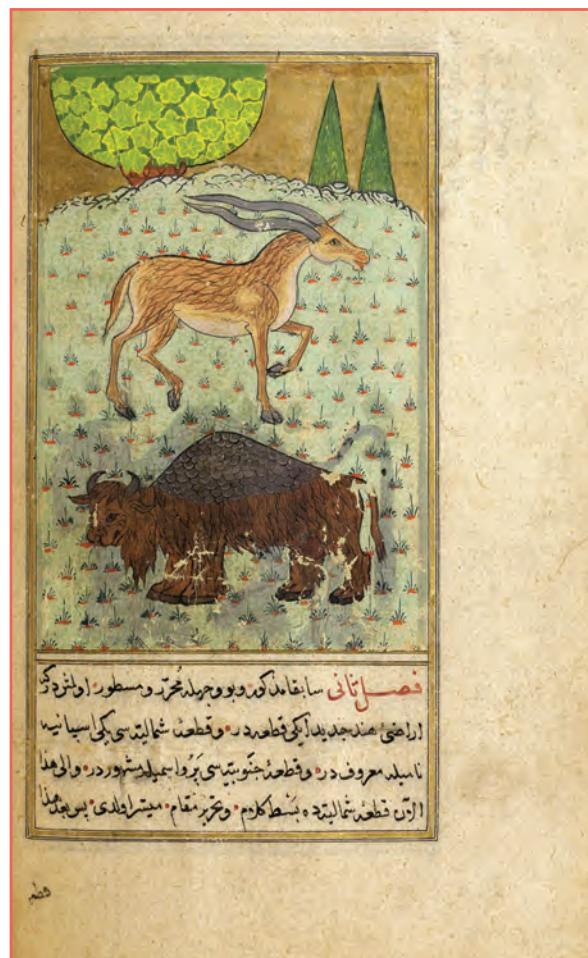 فصل ثانی سابقا مذکور و بو وجهله محرّر و مسطور اولنمشدر که
اراضئ هند جدید ایکی قطعه در و قطعهٔ شمالیته سی یکی اسپانیه
نامیله معروف در و قطعهٔ جنوبیته سی پَرُو اسمیله مشهور در و الی هذا
الآن قطعهٔ شمالیته ده بَسْط کلام و تحریر مقام میسّر اولدی پس بعد هذا